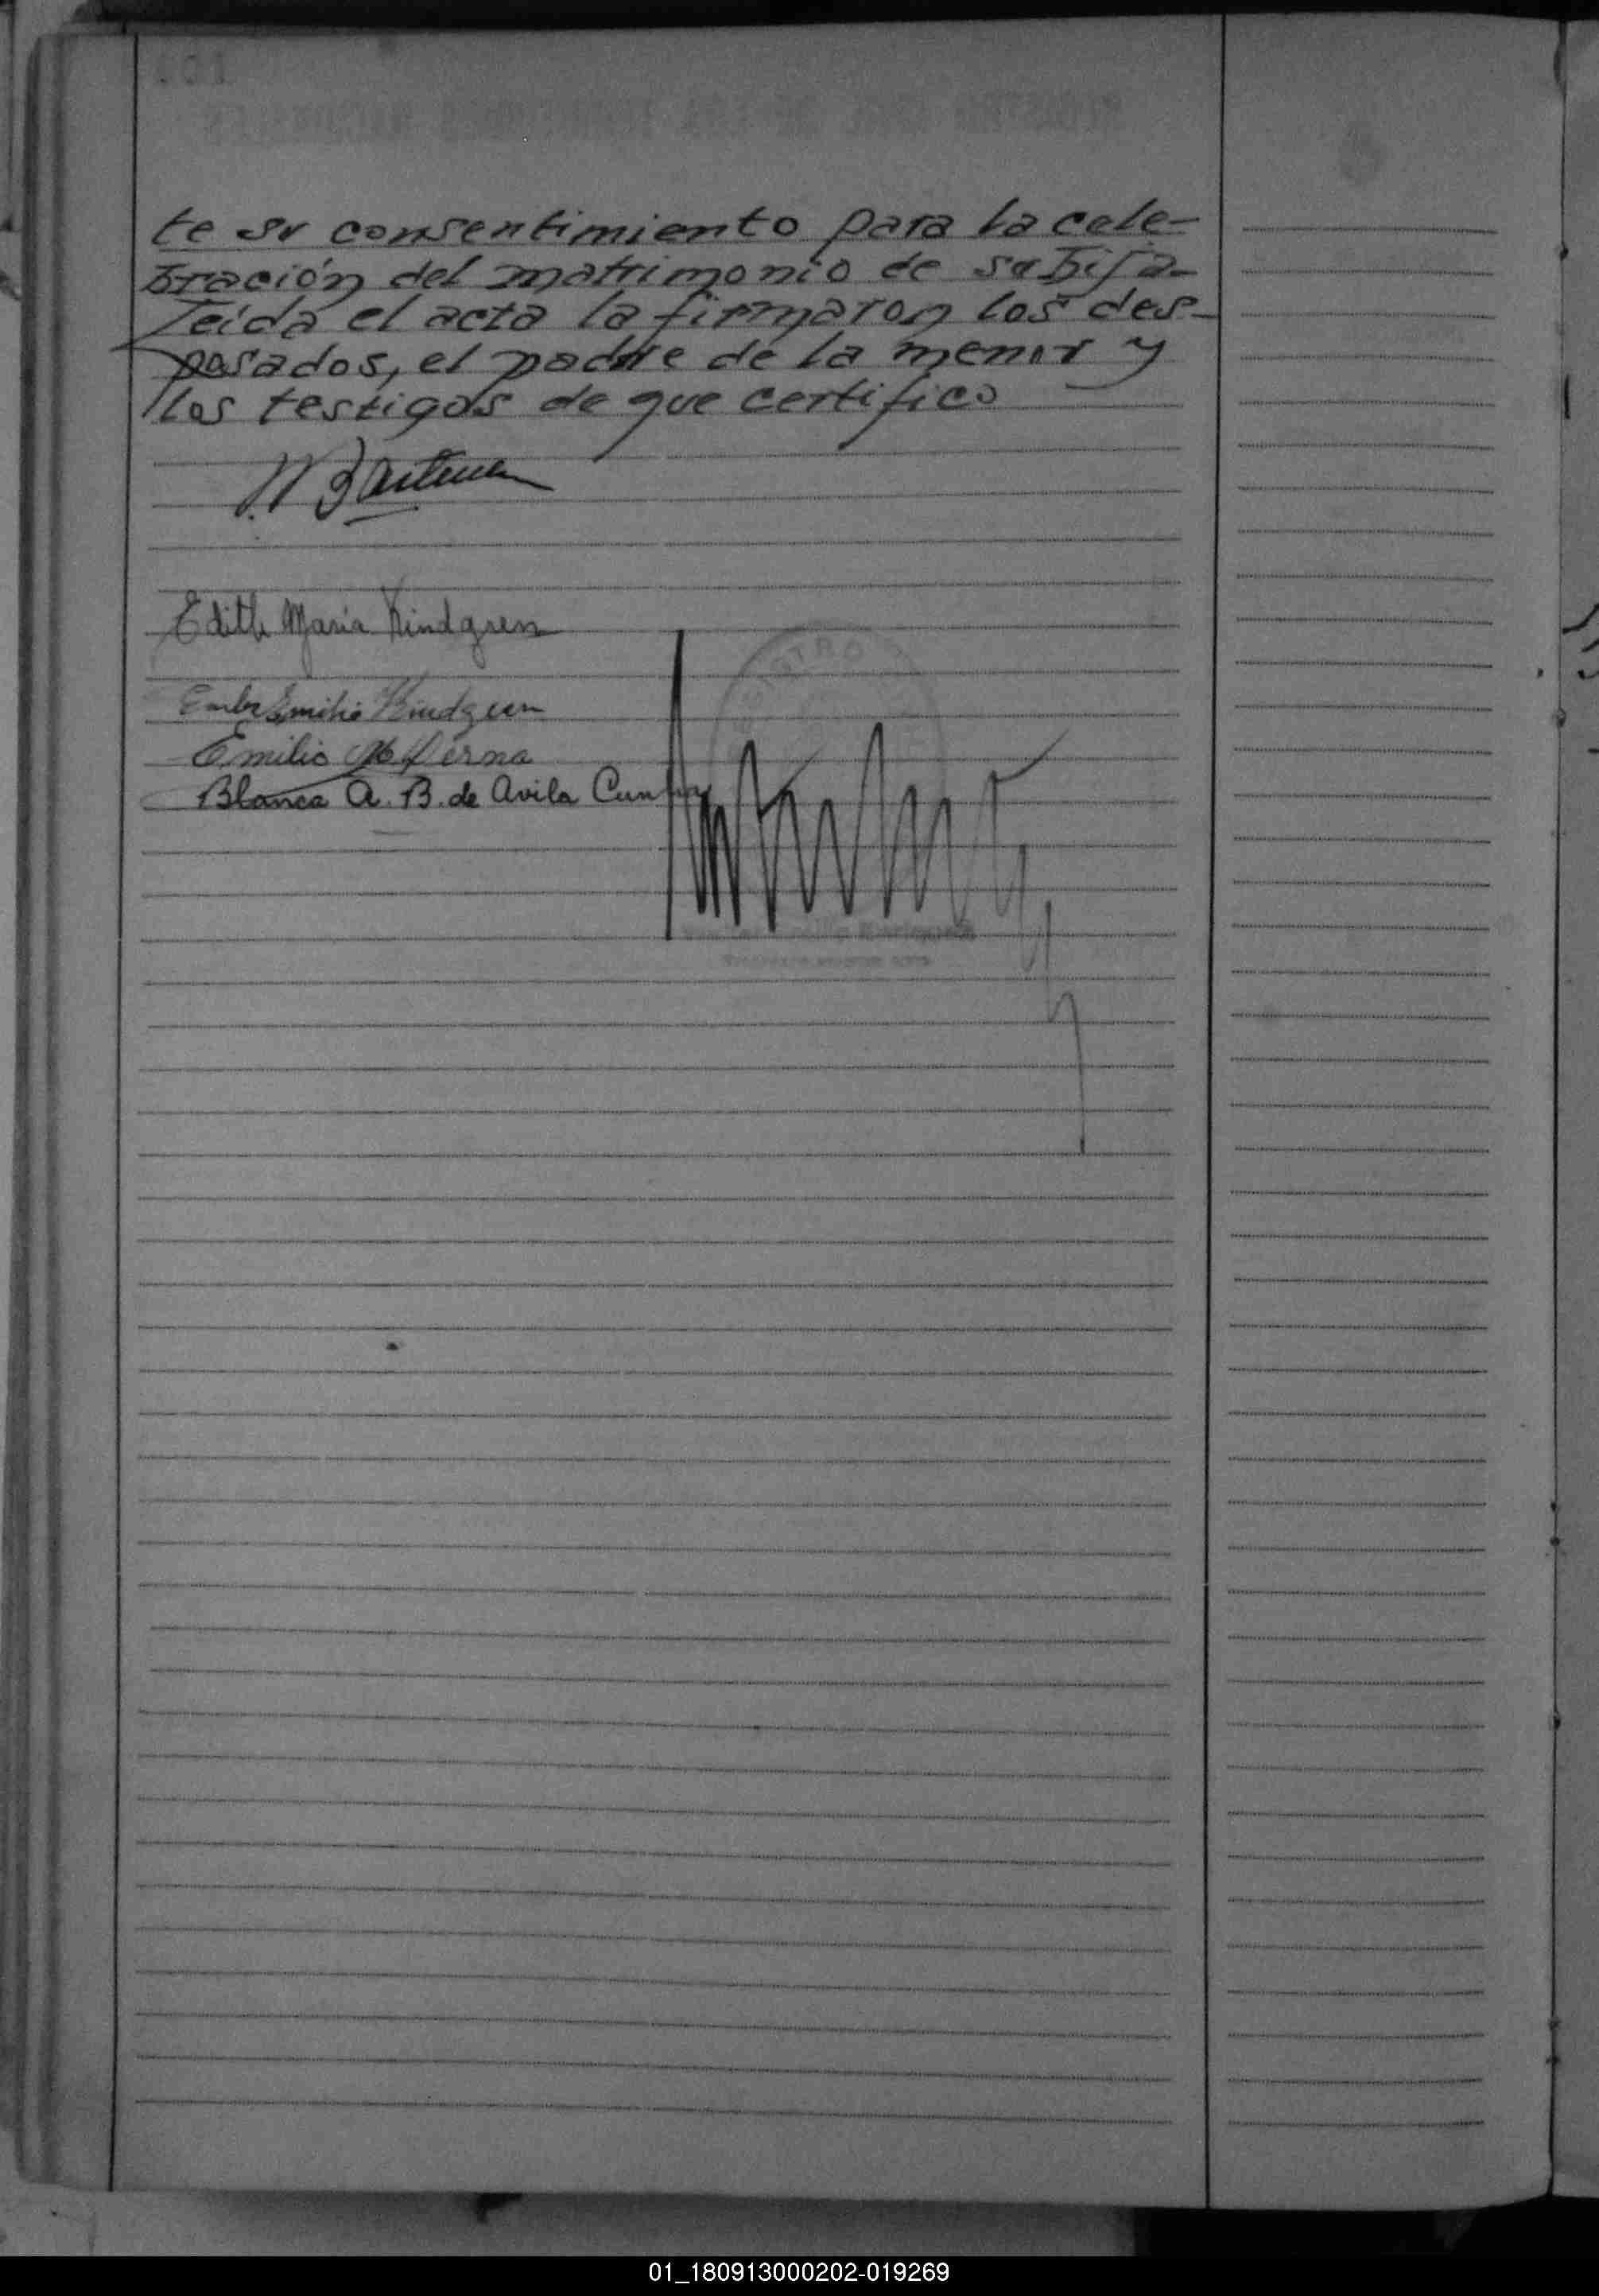 te su consentimiento para la cele-
bración del matrimonio de su hija-
Leída el acta la firmaron los des-
posados, el padre de la menor y
los testigos de que certifico
Edith María Kindgren
Emilio Kindgren
Emilio
Blanca A. B. de Avila Cunha
REGISTRO
01_180913000202-019269